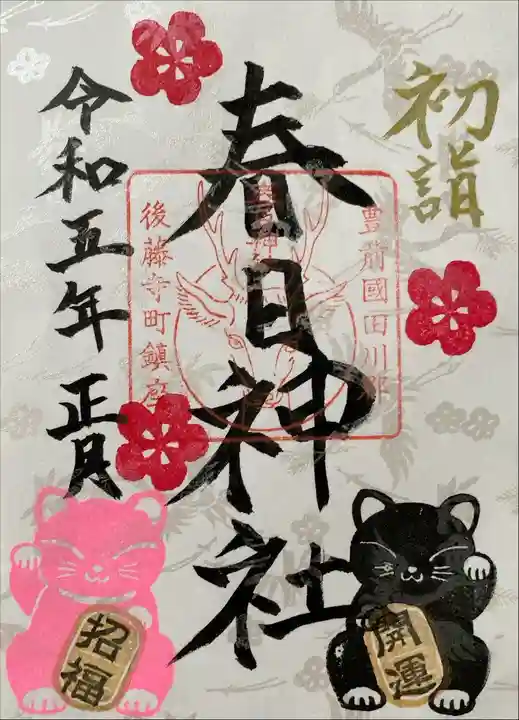 初詣
豊前國田川郡
春日神社
後藤寺町鎮座
令和五年正月
招福
開運